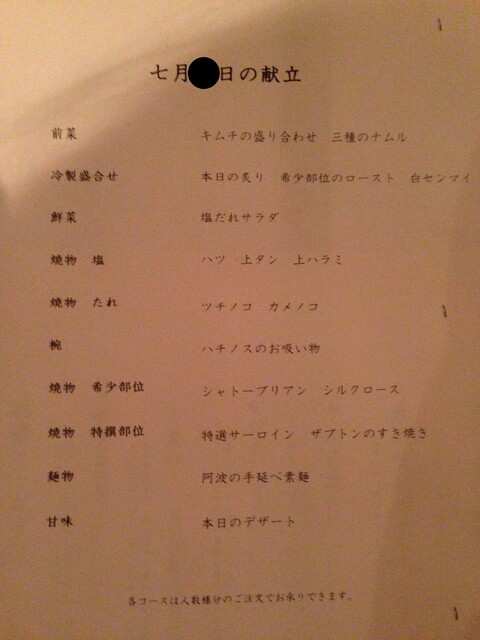 七月 日の献立
前菜 キムチの盛り合わせ 三種のナムル
冷製盛合せ 本日の炙り 希少部位のロースト 白センマイ
鮮菜 塩だれサラダ
焼物 塩 ハツ 上タン 上ハラミ
焼物 たれ ツチノコ カメノコ
椀 ハチノスのお吸い物
焼物 希少部位 シャトーブリアン シルクロース
焼物 特撰部位 特選サーロイン ザブトンのすき焼き
麺物 阿波の手延べ素麺
甘味 本日のデザート
各コースは人数様分のご注文でお承りできます。